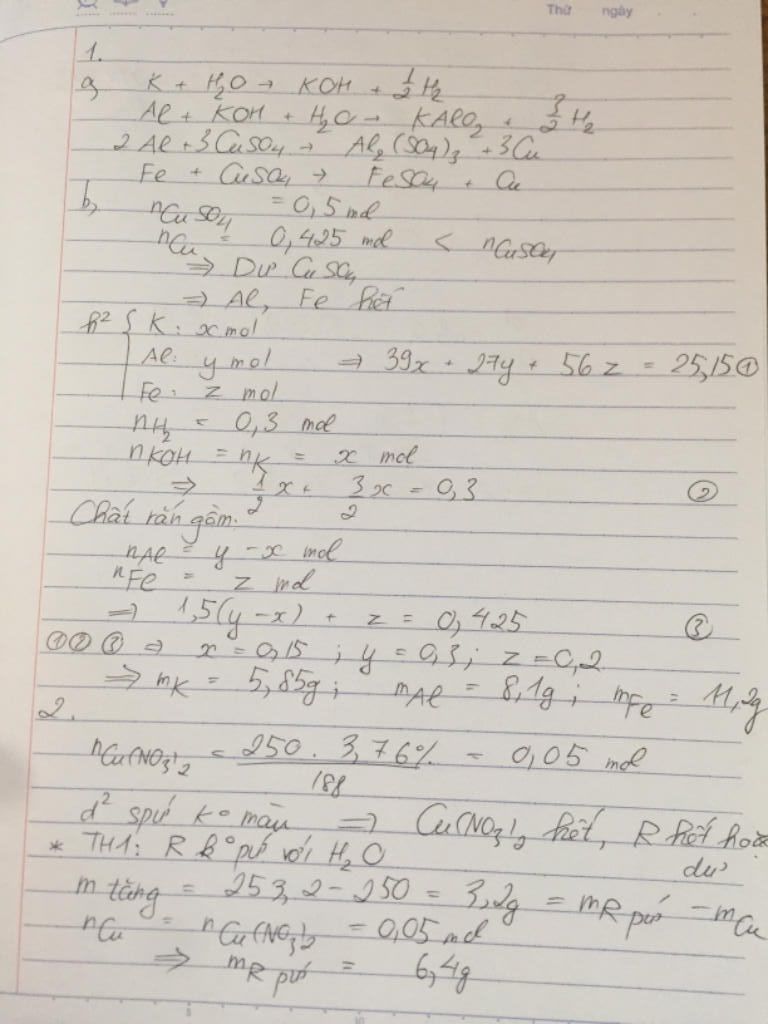 Thứ ngày
1.
a, K + H₂O → KOH + 1/2 H₂
Al + KOH + H₂O → KAlO₂ + 3/2 H₂
2Al + 3CuSO₄ → Al₂(SO₄)₃ + 3Cu
Fe + CuSO₄ → FeSO₄ + Cu
b, nCuSO₄ = 0,5 mol
nCu = 0,425 mol < nCuSO₄
⇒ Dư CuSO₄
⇒ Al, Fe hết
h² { K: x mol
Al: y mol ⇒ 39x + 27y + 56z = 25,15 ①
Fe: z mol
nH₂ = 0,3 mol
nKOH = nK = x mol
⇒ 1/2 x + 3/2 x = 0,3 ②
Chất rắn gồm:
nAl = y - x mol
nFe = z mol
⇒ 1,5(y-x) + z = 0,425 ③
①②③ ⇒ x = 0,15 ; y = 0,3 ; z = 0,2
⇒ mK = 5,85g ; mAl = 8,1g ; mFe = 11,2g
2.
nCu(NO₃)₂ = 250 . 3,76% / 188 = 0,05 mol
d² spứ k° màu ⇒ Cu(NO₃)₂ hết, R hết hoặc
dư
* TH1: R k° pứ với H₂O
m tăng = 253,2 - 250 = 3,2g = mR pứ - mCu
nCu = nCu(NO₃)₂ = 0,05 mol
⇒ mR pứ = 6,4g